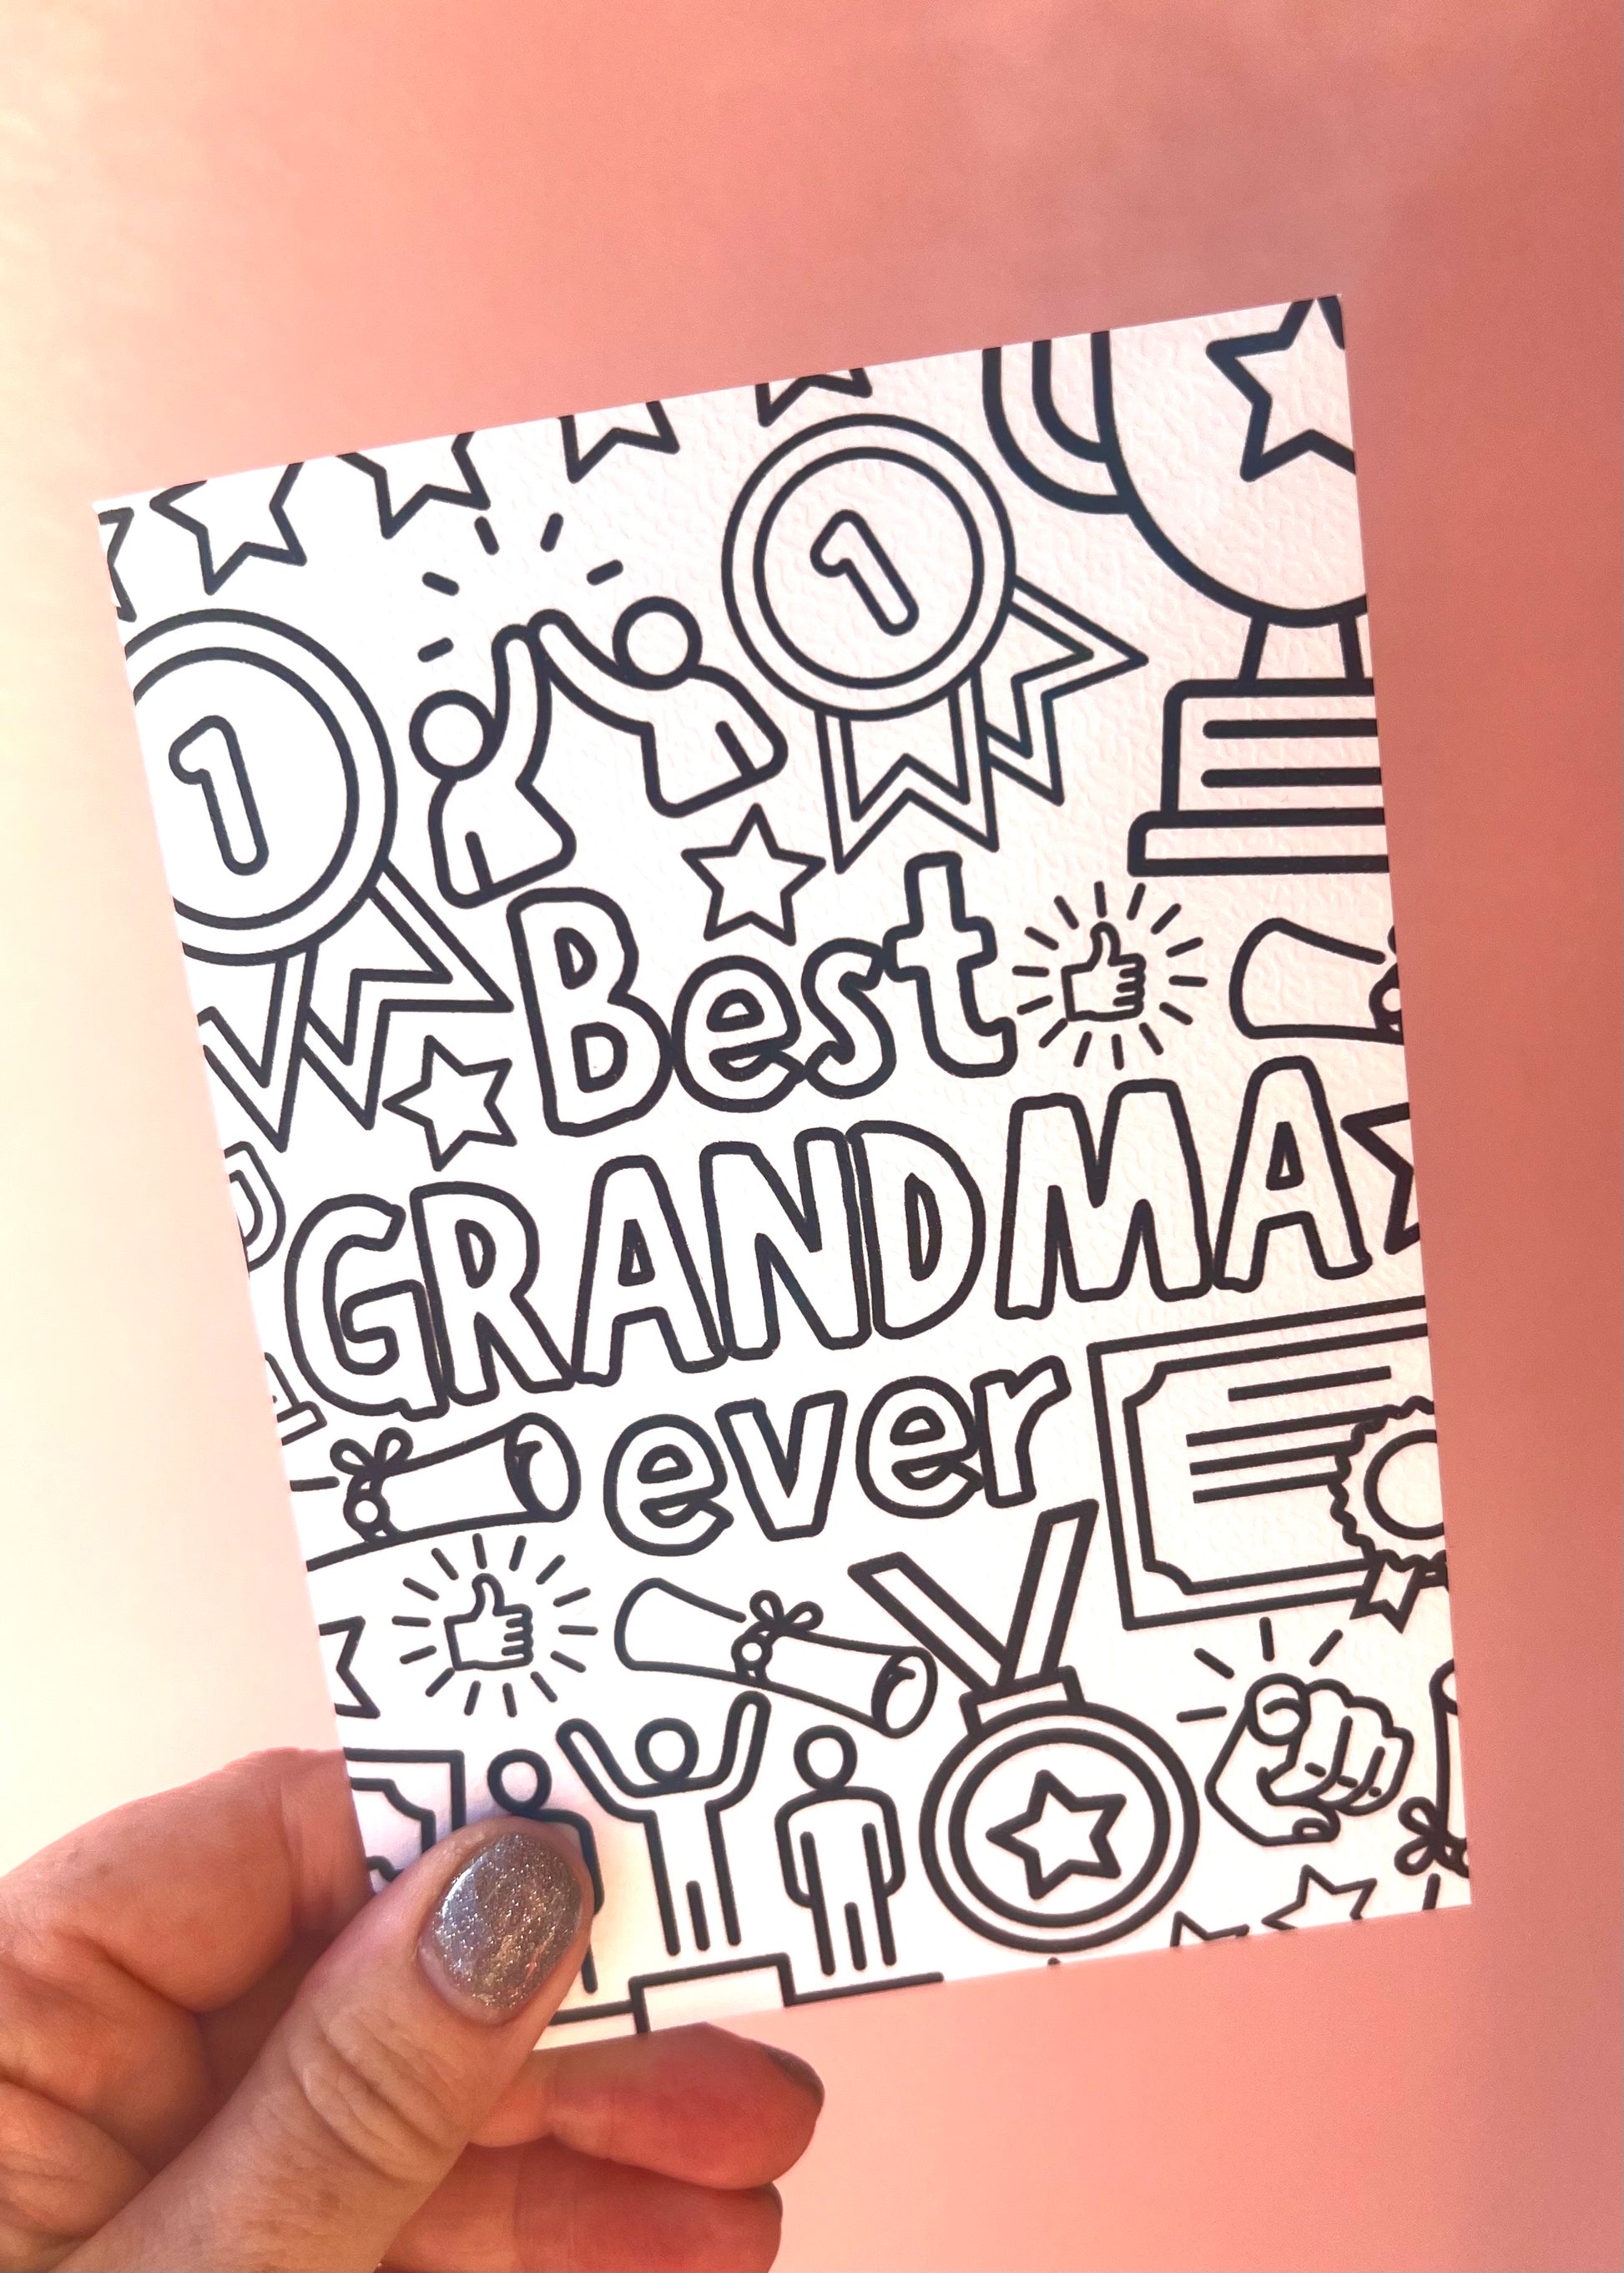 1
1
Best
GRANDMA
ever